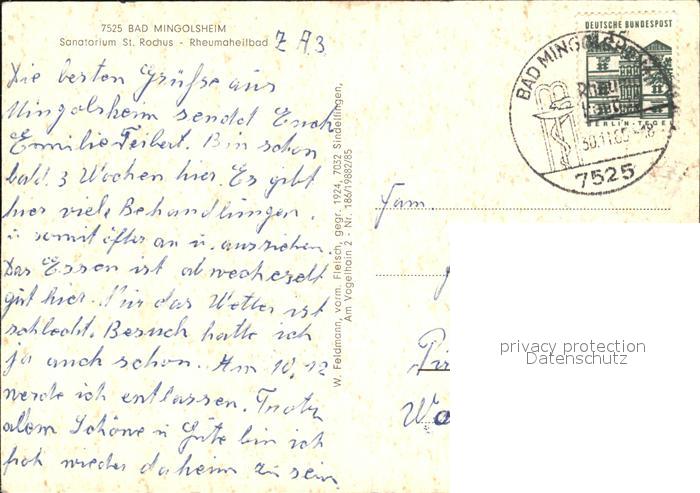 7525 BAD MINGOLSHEIM
Sanatorium St. Rochus - Rheumaheilbad
Z A3
Die besten Grüße aus
Mingolsheim sendet Euch
Emilie Feibert. Bin schon
bald 3 Wochen hier. Es gibt
hier viele Behandlungen.
u. somit öfter an u. ausziehen.
Das Essen ist abwechselt
gut hier. Nur das Wetter ist
schlecht. Besuch hatte ich
ja auch schon. Am 10.12
werde ich entlassen. Trotz
allem Schöne u Gute bin ich
froh wieder daheim zu sein
W. Feldmann, vorm. Fleisch, gegr. 1924, 7032 Sindelfingen,
Am Vogelhain 2 - Nr. 186/19882/85
DEUTSCHE BUNDESPOST
BERLIN-TEGEL
BAD MINGOLSHEIM
30.11.65-18
7525
Fam.
Pir
Wa
privacy protection
Datenschutz